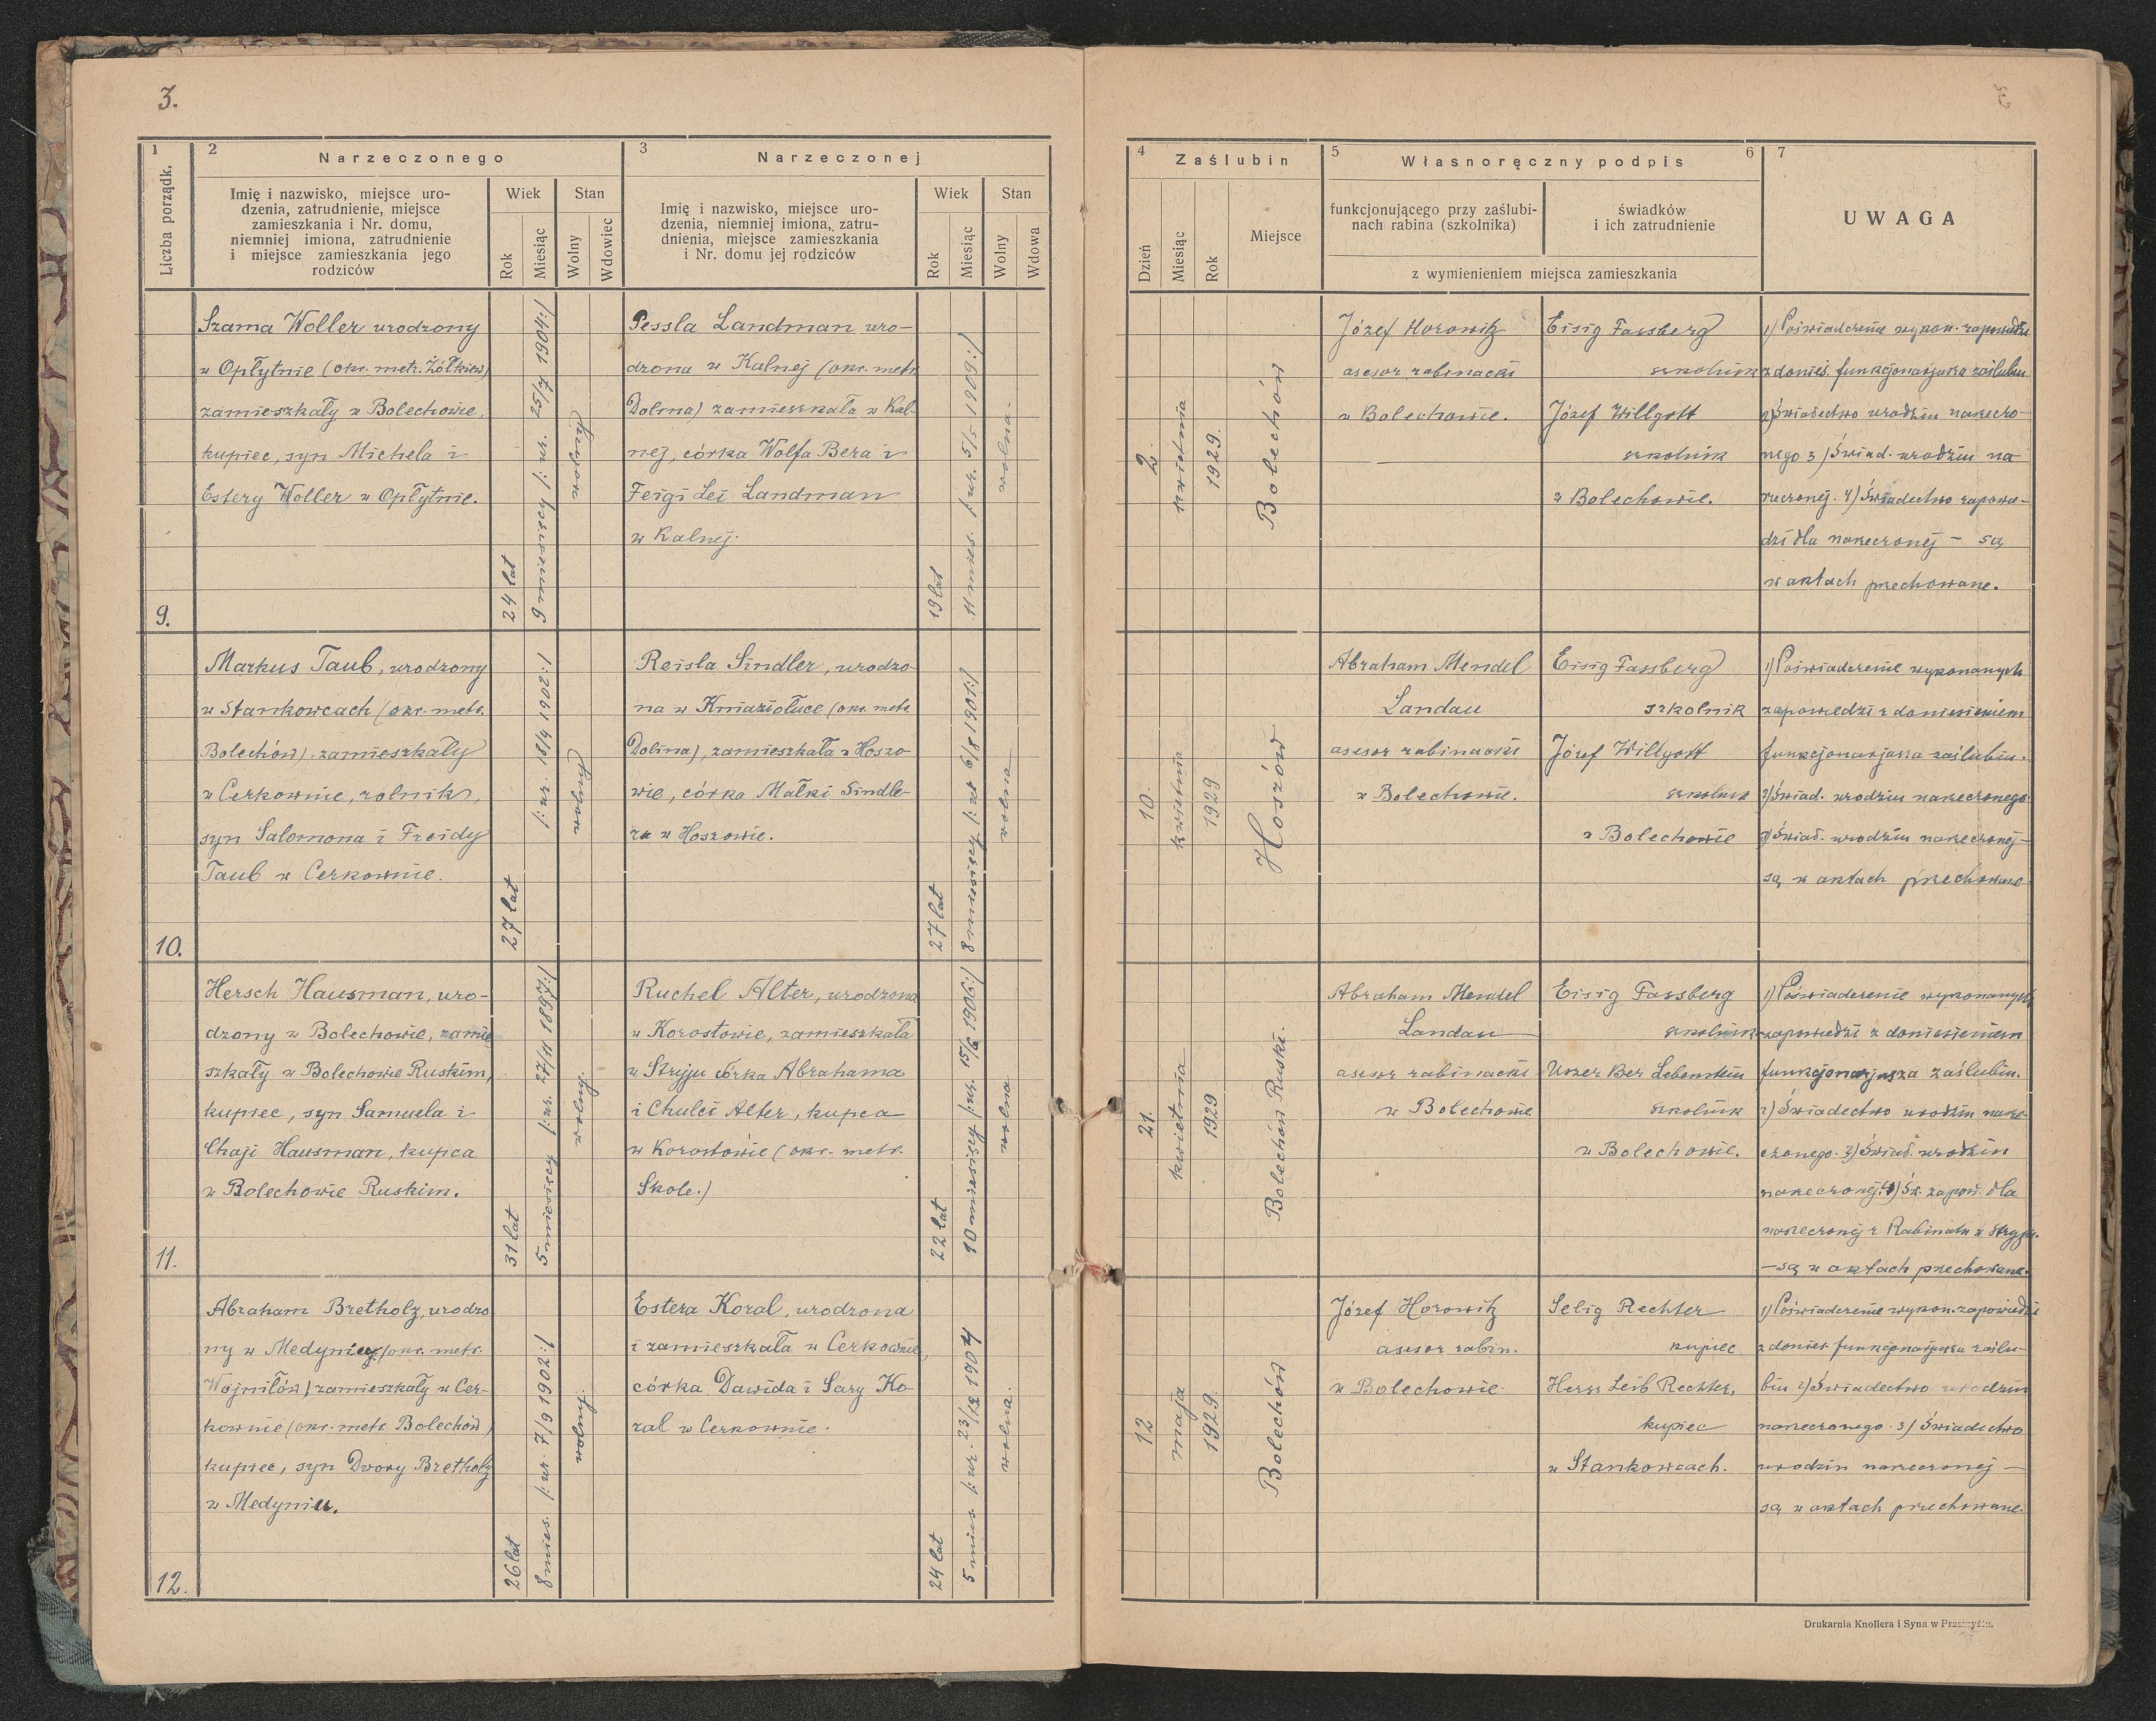 3.
1
Liczba porządk.
2
Narzeczonego
Imię i nazwisko, miejsce uro-
dzenia, zatrudnienie, miejsce
zamieszkania i Nr. domu,
niemniej imiona, zatrudnienie
i miejsce zamieszkania jego
rodziców
Wiek
Rok
Miesiąc
Stan
Wolny
Wdowiec
3
Narzeczonej
Imię i nazwisko, miejsce uro-
dzenia, niemniej imiona, zatru-
dnienia, miejsce zamieszkania
i Nr. domu jej rodziców
Wiek
Rok
Miesiąc
Stan
Wolny
Wdowa
4
Zaślubin
Dzień
Miesiąc
Rok
Miejsce
5
Własnoręczny podpis
6
funkcjonującego przy zaślubi-
nach rabina (szkolnika)
świadków
i ich zatrudnienie
z wymienieniem miejsca zamieszkania
7
UWAGA
9.
Szama Woller urodzony
w Opłytnie (okr. metr. Żółkiew)
zamieszkały w Bolechowie,
kupiec, syn Michela i
Estery Woller w Opłytnie.
24 lat
9 miesięcy /: ur. 25/7 1904:/
wolny
Pessla Landman uro-
dzona w Kalnej (okr. metr.
Dolina) zamieszkała w Kal-
nej, córka Wolfa Bera i
Feigi Lei Landman
w Kalnej.
19 lat
11 mies. /: ur. 5/5 1909:/
wolna.
2.
kwietnia
1929.
Bolechów
Józef Horowitz
asesor rabinacki
w Bolechowie.
Eisig Fassberg
szkolnik
Józef Willgott
szkolnik
w Bolechowie.
1) Poświadczenie wykon. zapowiedzi
z donies. funkcjonarjusza zaślubin
2) Świadectwo urodzin narzeczo-
nego 3) Świad. urodzin na
rzeczonej. 4) Świadectwo zapowie-
dzi dla narzeczonej – są
w aktach przechowane.
10.
Markus Taub, urodzony
w Stankowcach (okr. metr.
Bolechów), zamieszkały
w Cerkownie, rolnik,
syn Salomona i Freidy
Taub w Cerkownie.
27 lat
/: ur. 18/4 1902:/
wolny
Reisla Sindler, urodzo-
na w Kniaziołuce (okr. metr.
Dolina), zamieszkała w Hoszo-
wie, córka Małki Sindle-
ra w Hoszowie.
27 lat
8 miesięcy /: ur 6/8 1901:/
wolna
10.
kwietnia
1929
Hoszów
Abraham Mendel
Landau
asesor rabinacki
w Bolechowie.
Eisig Fassberg
szkolnik
Józef Willgott
szkolnik
w Bolechowie
1) Poświadczenie wykonanych
zapowiedzi z doniesieniem
funkcjonarjusza zaślubin.
2) Świad. urodzin narzeczonego
3) Świad. urodzin narzeczonej –
są w aktach przechowane
11.
Hersch Hausman, uro-
dzony w Bolechowie, zamie
szkały w Bolechowie Ruskim,
kupiec, syn Samuela i
Chaji Hausman, kupca
w Bolechowie Ruskim.
31 lat
5 miesięcy /: ur. 27/11 1897:/
wolny.
Ruchel Alter, urodzona
w Korostowie, zamieszkała
w Stryju córka Abrahama
i Chulci Alter, kupca
w Korostowie (okr. metr.
Skole.)
22 lat
10 miesięcy /: ur. 15/6 1906:/
wolna
21.
kwietnia
1929
Bolechów Ruski.
Abraham Mendel
Landau
asesor rabinacki
w Bolechowie
Eisig Fassberg
szkolnik
Uszer Ber Lebenstein
szkolnik
w Bolechowie.
1) Poświadczenie wykonanych
zapowiedzi z doniesieniem
funkcjonarjusza zaślubin.
2) Świadectwo urodzin narze-
czonego. 3) Świad. urodzin
narzeczonej. 4) Św. zapow. dla
narzeczonej z Rabinatu w Stryju.
– są w aktach przechowane.
12.
Abraham Bretholz, urodzo
ny w Medyni (okr. metr.
Wojniłów) zamieszkały w Cer-
kownie (okr. metr. Bolechów)
kupiec, syn Dwory Bretholz
w Medyni.
26 lat
8 mies. /: ur. 7/9 1902:/
wolny.
Estera Koral, urodzona
i zamieszkała w Cerkownie,
córka Dawida i Sary Ko-
ral w Cerkownie.
24 lat
5 mies. /: ur. 23/12 1904
wolna.
12
maja
1929.
Bolechów
Józef Horowitz
asesor rabin.
w Bolechowie.
Selig Rechter
kupiec
Hersz Leib Rechter,
kupiec
w Stankowcach.
1) Poświadczenie wykon. zapowiedzi
z donies. funkcjonarjusza zaślu-
bin 2) Świadectwo urodzin
narzeczonego. 3) Świadectwo
urodzin narzeczonej –
są w aktach przechowane.
Drukarnia Knollera i Syna w Przemyślu.